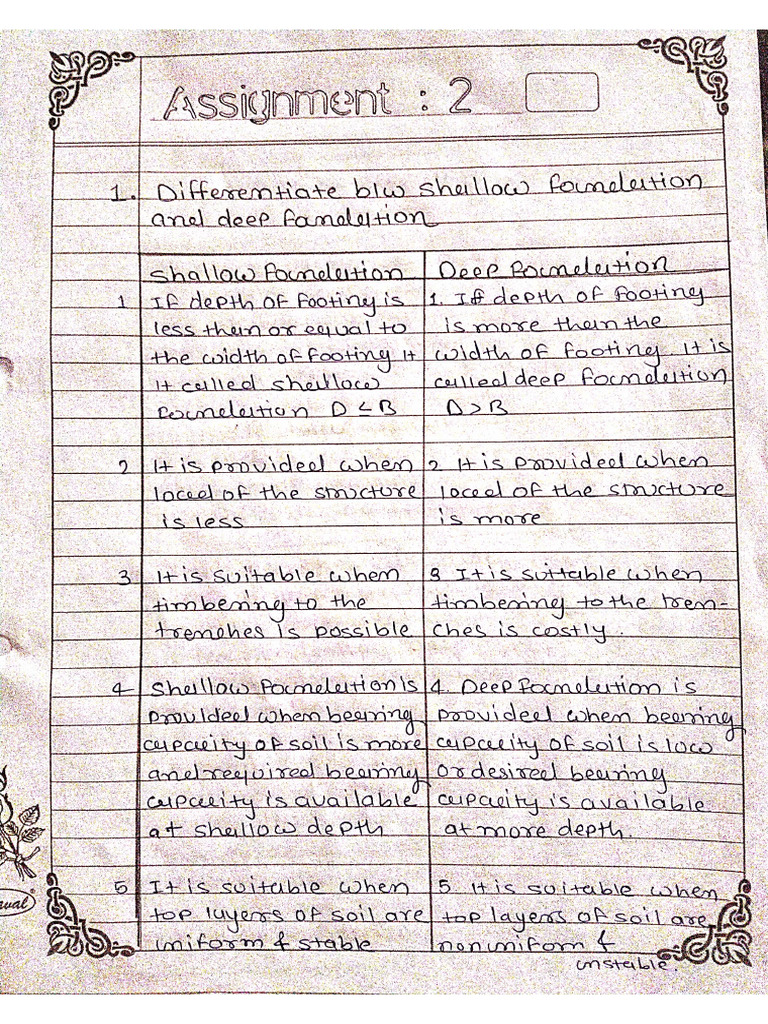 Assignment : 2
1. Differentiate b/w shallow foundation
and deep foundation
Shallow foundation
1 If depth of footing is
less than or equal to
the width of footing it
it called shallow
foundation D ≤ B
2 It is provided when
load of the structure
is less
3 It is suitable when
timbering to the
trenches is possible
4 Shallow foundation is
provided when bearing
capacity of soil is more
and required bearing
capacity is available
at shallow depth
5 It is suitable when
top layers of soil are
uniform & stable
Deep foundation
1. If depth of footing
is more than the
width of footing. It is
called deep foundation
D > B
2 It is provided when
load of the structure
is more
3 It is suitable when
timbering to the tren-
ches is costly.
4. Deep foundation is
provided when bearing
capacity of soil is low
or desired bearing
capacity is available
at more depth.
5. It is suitable when
top layers of soil are
nonuniform &
unstable.